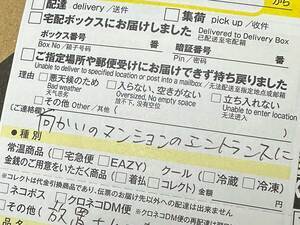 から
□配達 delivery /送件 □集荷 pick up /收件
□宅配ボックスにお届けしました Delivered to Delivery Box 已配送至宅配箱
ボックス番号 番 暗証番号 番
Box No /箱子号码 Pin /密码
□ご指定場所や郵便受けにお届けできず持ち戻りました
Unable to deliver to specified location or post into a mailbox /无法配送至指定地点或邮箱
理由 □悪天候のため □入らない、空きがない □立ち入れない
Bad weather Oversized, No empty space Unable to enter
天气恶劣 放不下, 没有空位 无法进入
□その他 Other /其他
(ご連絡欄) 向かいのマンションのエントランスに
●種別
常温商品(□宅急便 □EAZY) クール(□冷蔵 □冷凍)
金銭のご用意をいただく商品(□着払 □コレクト)金額 円
※コレクトは代金引換商品であり、伝票のお届け先以外への配達は出来ません
□ネコポス □クロネコDM便(※クロネコDM便の再配達は
□その他( 放置
品名